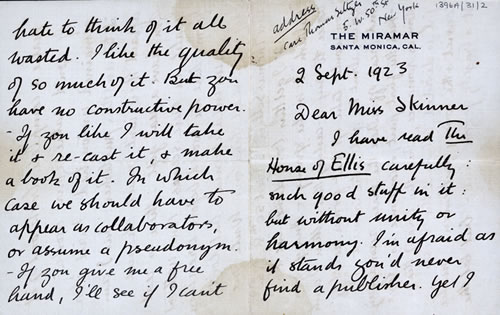 1396A/31/2
address
care Thomas Seltzer
5. W. 50th St
New York
THE MIRAMAR
SANTA MONICA, CAL.
2 Sept. 1923
Dear Miss Skinner
I have read The
House of Ellis carefully:
such good stuff in it:
but without unity or
harmony. I'm afraid as
it stands you'd never
find a publisher. Yet I
hate to think of it all
wasted. I like the quality
of so much of it. But you
have no constructive power.
- If you like I will take
it & re-cast it, & make
a book of it. In which
case we should have to
appear as collaborators,
or assume a pseudonym.
- If you give me a free
hand, I'll see if I can't